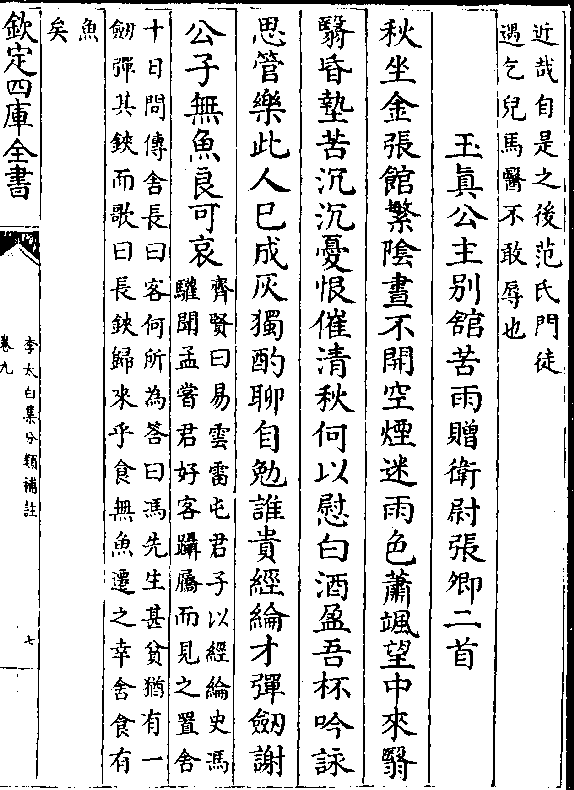 近哉自是之後范氏門徒
遇乞兒馬醫不敢辱也
玉眞公主別舘苦雨贈衛尉張卿二首
秋坐金張館繁陰晝不開空煙迷雨色蕭颯望中來翳
翳昏墊苦沉沉憂恨催清秋何以慰白酒盈吾杯吟詠
思管樂此人已成灰獨酌聊自勉誰貴經綸才彈劒謝
公子無魚良可哀
齊賢曰易雲雷屯君子以經綸史馮
驩聞孟嘗君好客躡屩而見之置舍
十日問傳舍長曰客何所為答曰馮先生甚貧猶有一
劒彈其鋏而歌曰長鋏歸來乎食無魚遷之幸舍食有
魚
矣
欽定四庫全書
李太白集分類補註
卷九
七